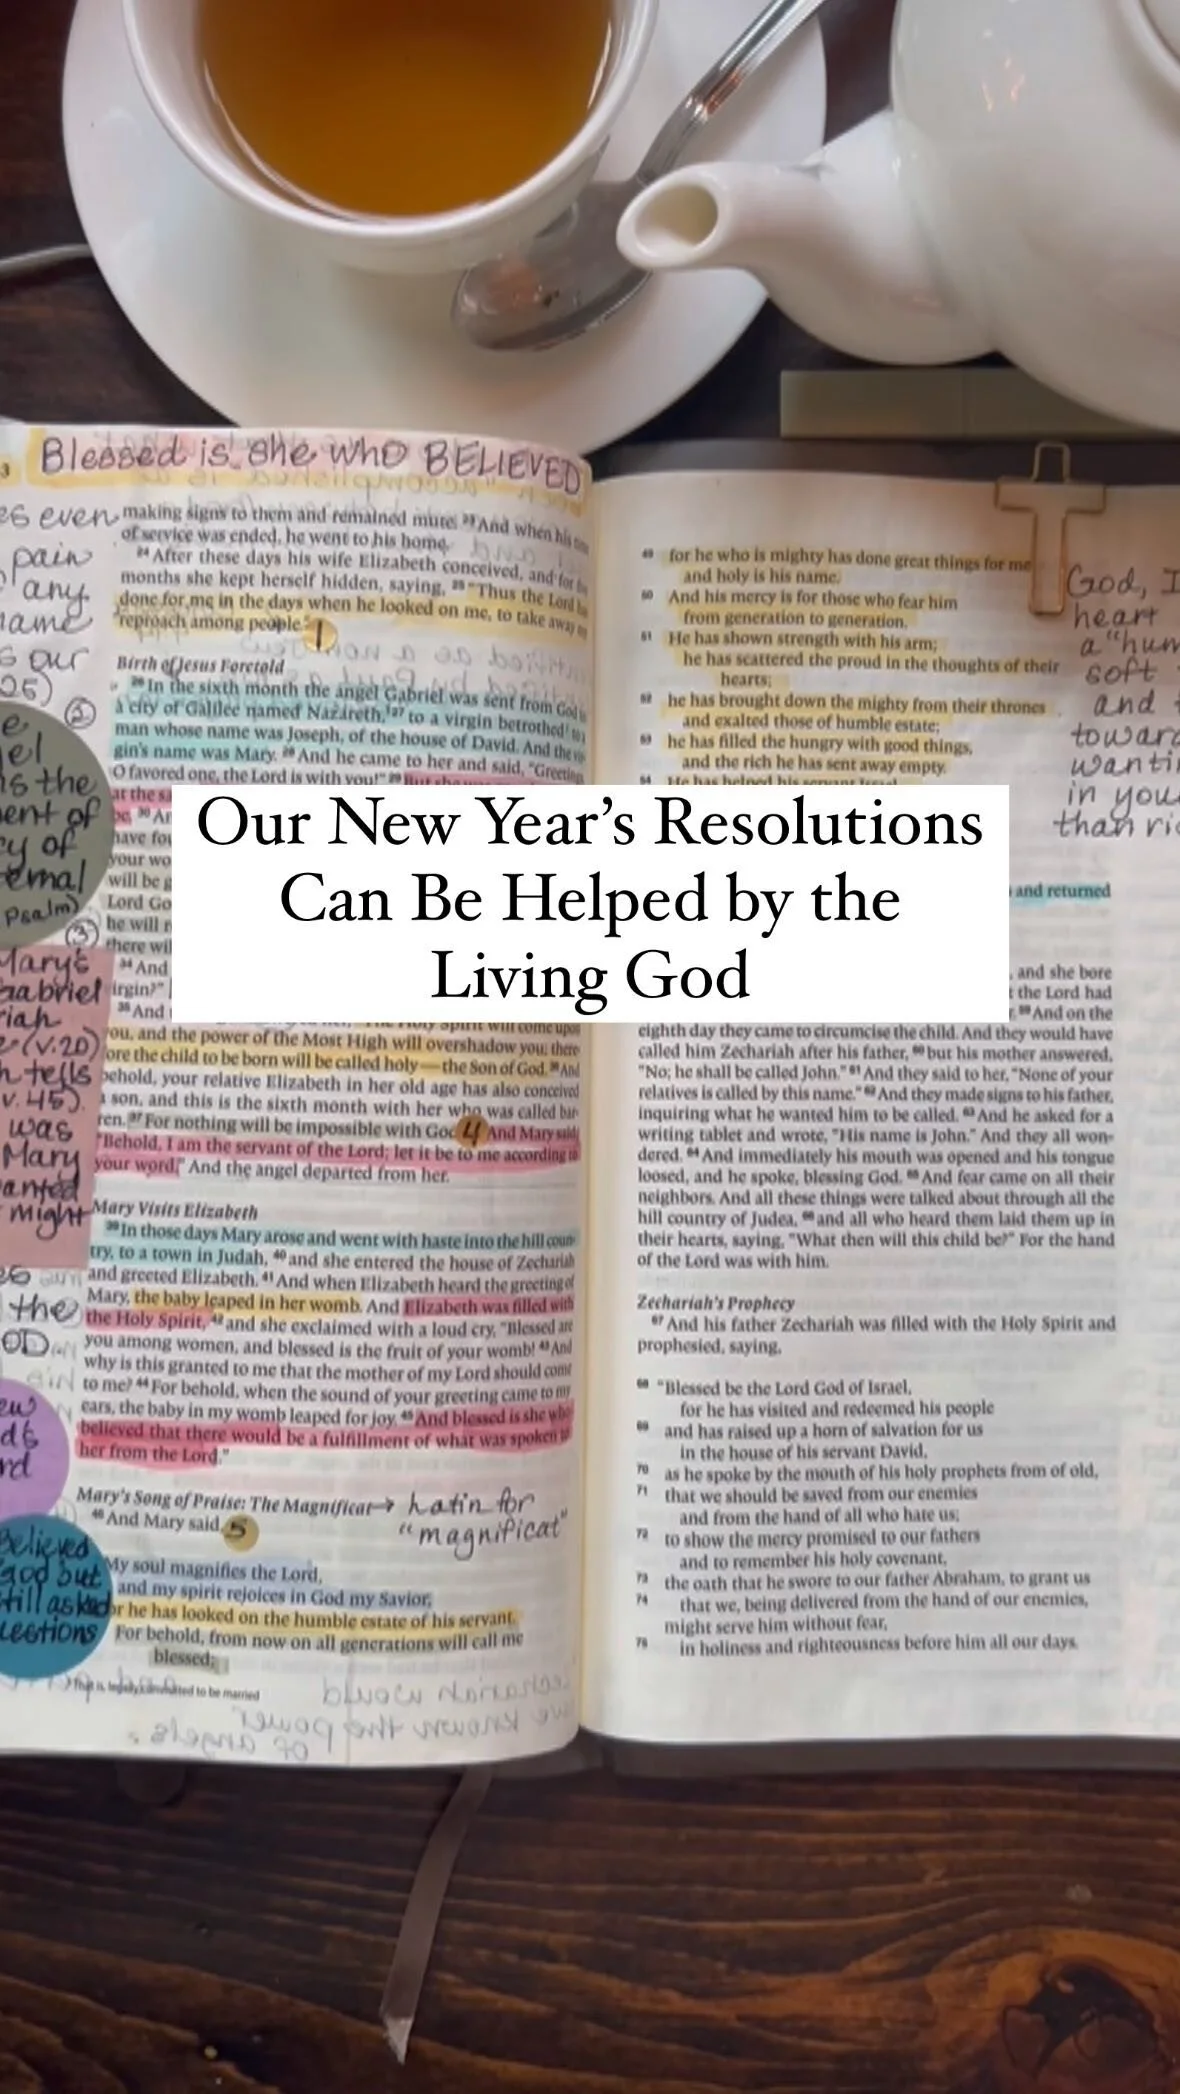 Blessed is she who BELIEVED
3
es even
pain
any
name
s our
25)
2
making signs to them and remained mute. 23 And when his
of service was ended, he went to his home.
24 After these days his wife Elizabeth conceived, and for
months she kept herself hidden, saying, 25 "Thus the Lord
done for me in the days when he looked on me, to take away
reproach among people."
1
Birth of Jesus Foretold
26 In the sixth month the angel Gabriel was sent from God
a city of Galilee named Nazareth, 27 to a virgin betrothed
man whose name was Joseph, of the house of David. And the
gin's name was Mary. 28 And he came to her and said, "Greetings,
O favored one, the Lord is with you!" 29 But she was
at the
30
have
your
will be
Lord
he will
there
34 And
35 And
gel
s the
ent of
cy of
Psalm)
3
Mary's
Gabriel
(v.20)
tells
v. 45).
was
Mary
might
Our New Year's Resolutions
Can Be Helped by the
Living God
you, and the power of the Most High will overshadow you; there
ore the child to be born will be called holy—the Son of God. 36 And
behold, your relative Elizabeth in her old age has also conceived
a son, and this is the sixth month with her who was called bar-
ren. 37 For nothing will be impossible with
4
And Mary said,
"Behold, I am the servant of the Lord; let it be to me according to
your word." And the angel departed from her.
Mary Visits Elizabeth
39 In those days Mary arose and went with haste into the hill coun-
try, to a town in Judah, 40 and she entered the house of Zechariah
and greeted Elizabeth. 41 And when Elizabeth heard the greeting of
Mary, the baby leaped in her womb. And Elizabeth was filled with
the Holy Spirit, 42 and she exclaimed with a loud cry, "Blessed are
you among women, and blessed is the fruit of your womb! 43 And
why is this granted to me that the mother of my Lord should come
to me? 44 For behold, when the sound of your greeting came to my
ears, the baby in my womb leaped for joy. 45 And blessed is she who
believed that there would be a fulfillment of what was spoken to
her from the Lord."
the
Believed
God but
still asked
Mary's Song of Praise: The Magnificat → Latin for
"magnificat"
46 And Mary said,
5
My soul magnifies the Lord,
and my spirit rejoices in God my Savior,
for he has looked on the humble estate of his servant.
For behold, from now on all generations will call me
blessed;
to be married
49 for he who is mighty has done great things for me
and holy is his name.
50 And his mercy is for those who fear him
from generation to generation.
51 He has shown strength with his arm;
he has scattered the proud in the thoughts of their
hearts;
52 he has brought down the mighty from their thrones
and exalted those of humble estate;
53 he has filled the hungry with good things,
and the rich he has sent away empty.
54 He has helped his servant Israel,
God, I
heart
a "hum
soft
and
toward
wanti
in you
than
and returned
and she bore
the Lord had
59 And on the
eighth day they came to circumcise the child. And they would have
called him Zechariah after his father, 60 but his mother answered,
"No; he shall be called John." 61 And they said to her, "None of your
relatives is called by this name." 62 And they made signs to his father,
inquiring what he wanted him to be called. 63 And he asked for a
writing tablet and wrote, "His name is John." And they all won-
dered. 64 And immediately his mouth was opened and his tongue
loosed, and he spoke, blessing God. 65 And fear came on all their
neighbors. And all these things were talked about through all the
hill country of Judea, 66 and all who heard them laid them up in
their hearts, saying, "What then will this child be?" For the hand
of the Lord was with him.
Zechariah's Prophecy
67 And his father Zechariah was filled with the Holy Spirit and
prophesied, saying,
68 "Blessed be the Lord God of Israel,
for he has visited and redeemed his people
69 and has raised up a horn of salvation for us
in the house of his servant David,
70 as he spoke by the mouth of his holy prophets from of old,
71 that we should be saved from our enemies
and from the hand of all who hate us;
72 to show the mercy promised to our fathers
and to remember his holy covenant,
73 the oath that he swore to our father Abraham, to grant us
74 that we, being delivered from the hand of our enemies,
might serve him without fear,
75 in holiness and righteousness before him all our days.